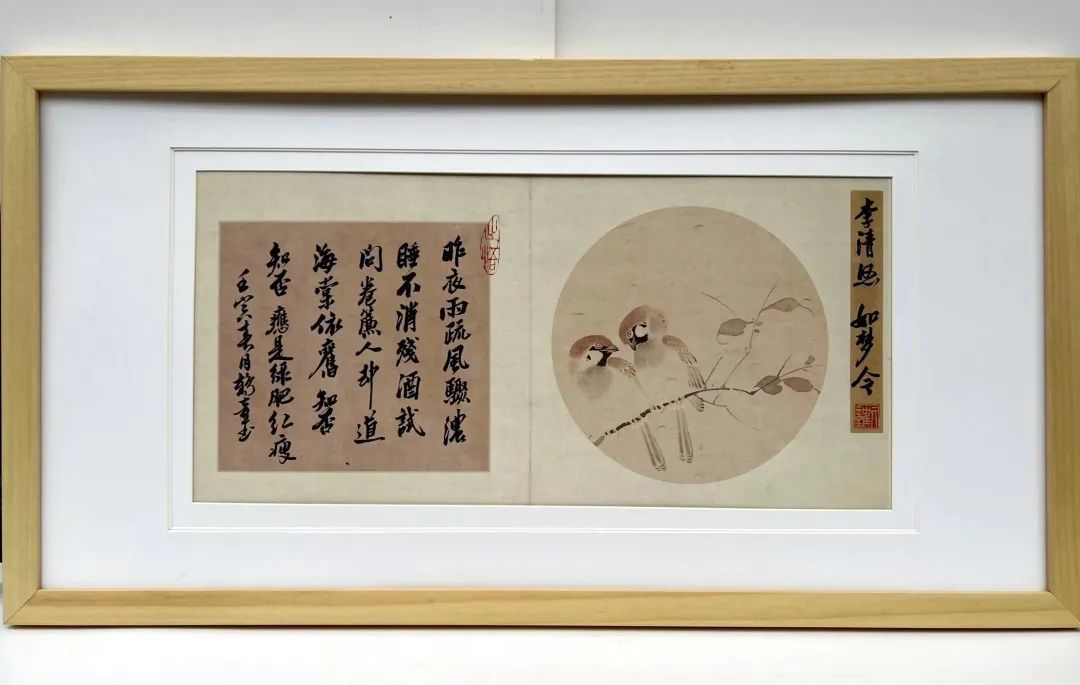 李清照 如梦令
昨夜雨疏風驟濃
睡不消殘酒試
問卷簾人却道
海棠依舊 知否
知否 應是绿肥红瘦
壬寅春月